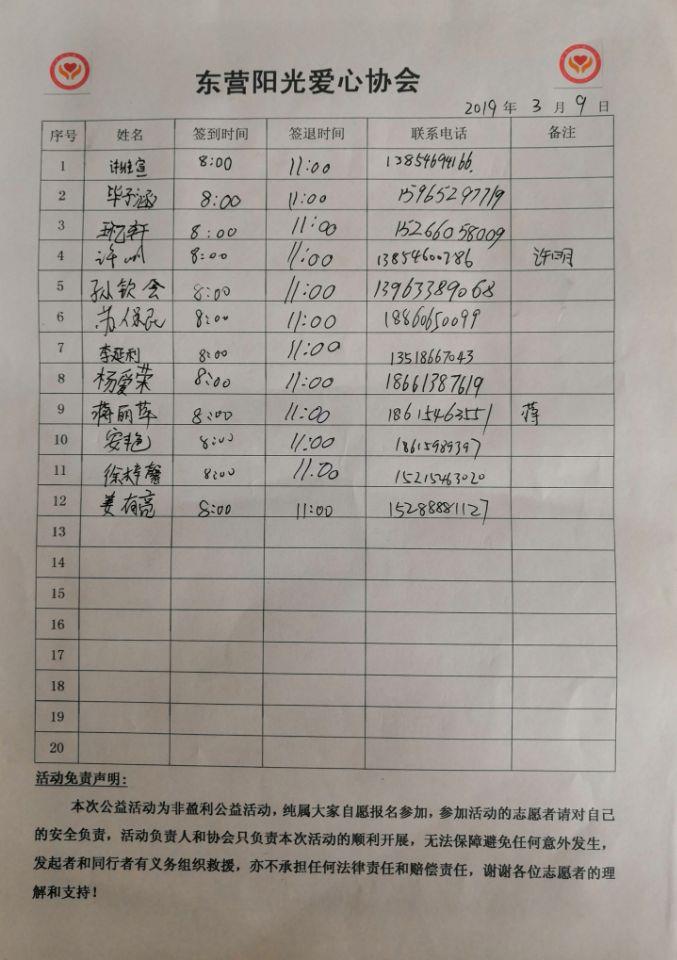 东营阳光爱心协会
2019 年 3 月 9 日
序号 姓名 签到时间 签退时间 联系电话 备注
1 8:00 11:00 13854694166
2 毕子涵 8:00 11:00 15965297719
3 8:00 11:00 15266058009
4 许明 8:00 11:00 13854600786 许明
5 孙钦会 8:00 11:00 13963389068
6 苏保民 8:00 11:00 18860650099
7 李延利 8:00 11:00 13518667043
8 杨爱荣 8:00 11:00 18661387619
9 蒋丽萍 8:00 11:00 18615463551 蒋
10 安艳 8:00 11:00 18615989397
11 徐梓馨 8:00 11:00 15215463020
12 姜有亮 8:00 11:00 15288881127
13
14
15
16
17
18
19
20
活动免责声明：
本次公益活动为非盈利公益活动，纯属大家自愿报名参加，参加活动的志愿者请对自己
的安全负责，活动负责人和协会只负责本次活动的顺利开展，无法保障避免任何意外发生，
发起者和同行者有义务组织救援，亦不承担任何法律责任和赔偿责任，谢谢各位志愿者的理
解和支持！